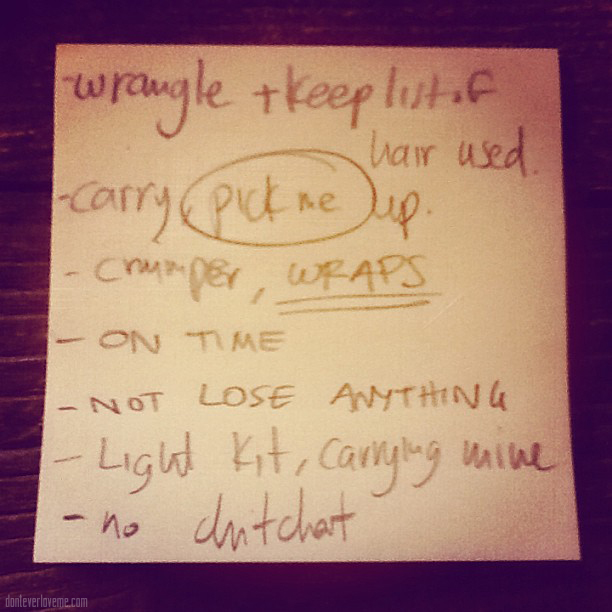 -wrangle + keep list of
hair used.
-carry, pick me up.
- crimper, WRAPS
- ON TIME
- NOT LOSE ANYTHING
- Light kit, carrying mine
- no chitchat
donteverloveme.com